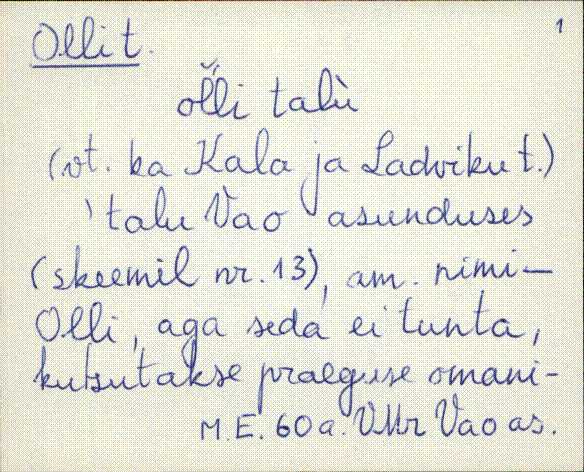 1
Olli t.
ol̆l̆i talù
(vt. ka Kala ja Ladviku t.)
' talu Vao asunduses
(skeemil nr. 13), am. nimi -
Olli, aga seda ei tunta,
kutsutakse praeguse omani-
M.E. 60 a. VMr Vao as.